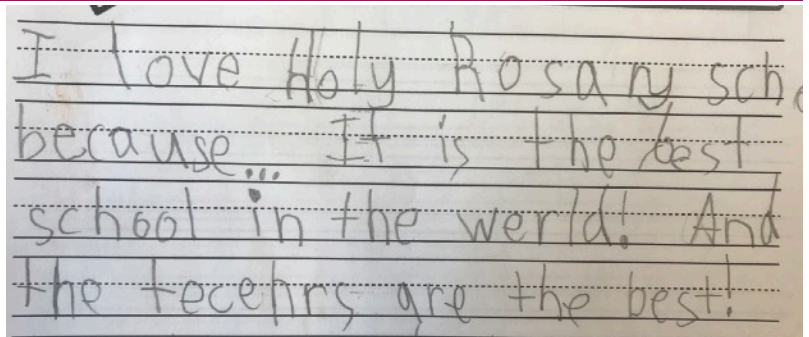 I love Holy Rosary sch
because... It is the best
school in the werld! And
the tecehrs are the best!